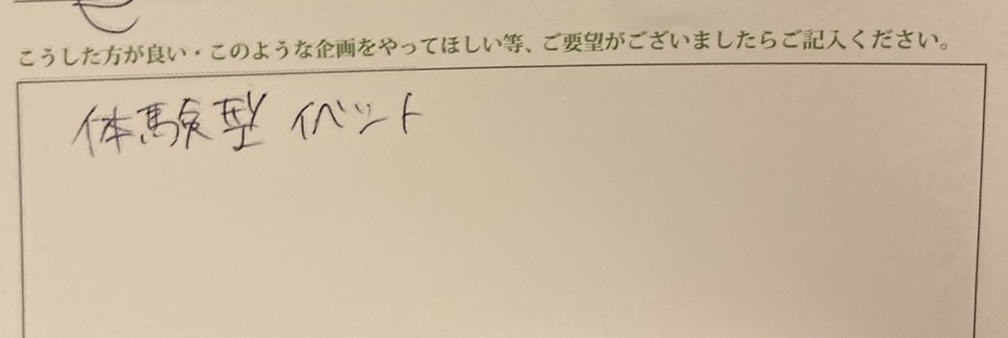 こうした方が良い・このような企画をやってほしい等、ご要望がございましたらご記入ください。
体験型 イベント